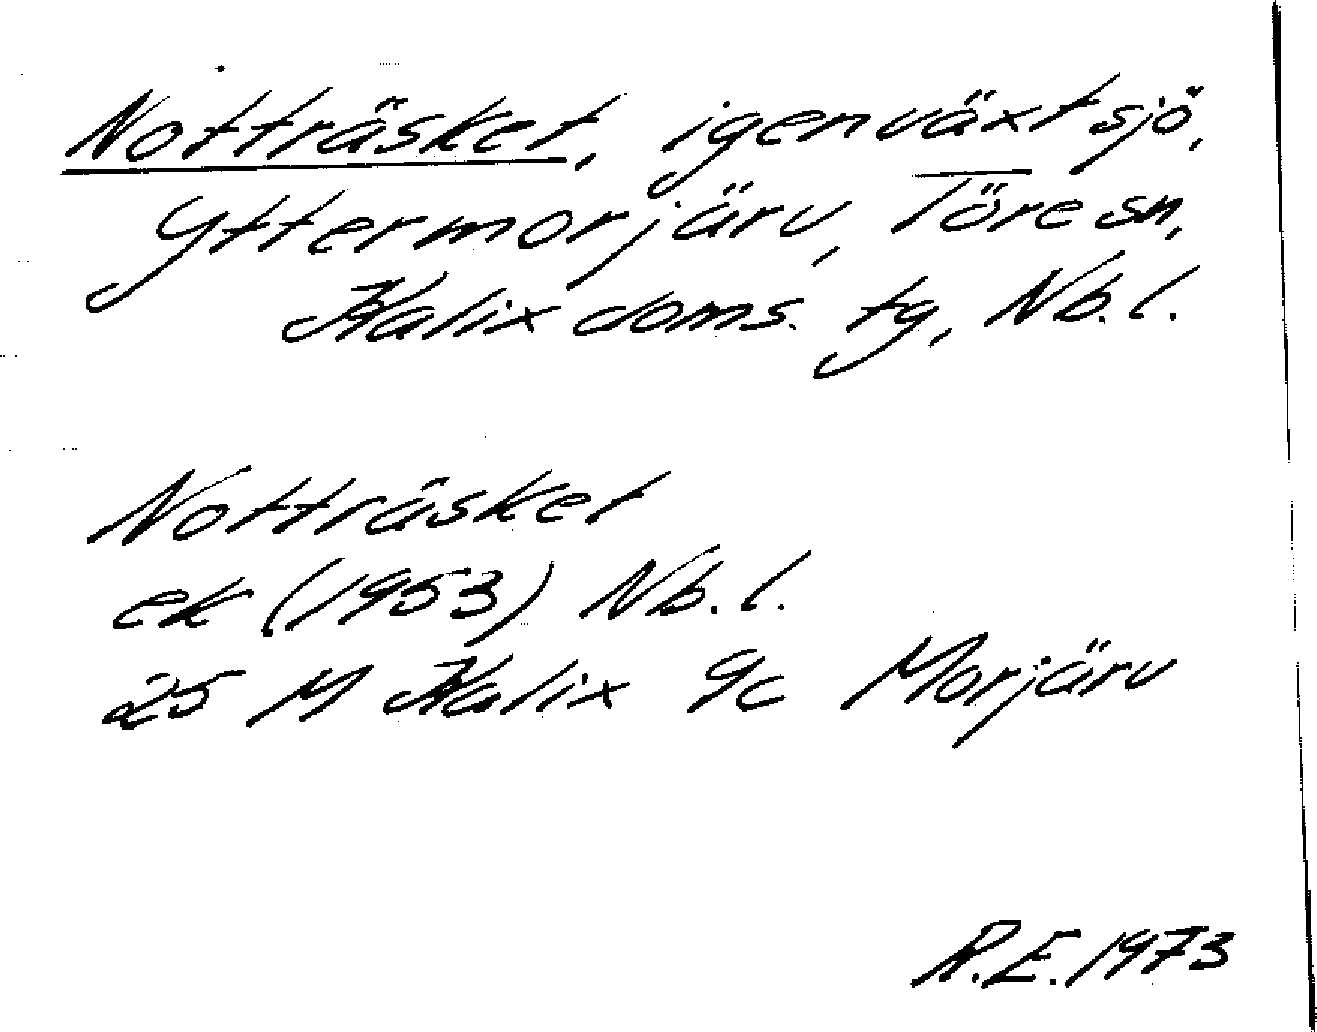 Notträsket, igenväxt sjö,
Yttermorjärv, Töre sn,
Kalix doms. tg, Nb. l.
Notträsket
ek (1953) Nb. l.
25 M Kalix 9c Morjärv
R.E. 1973